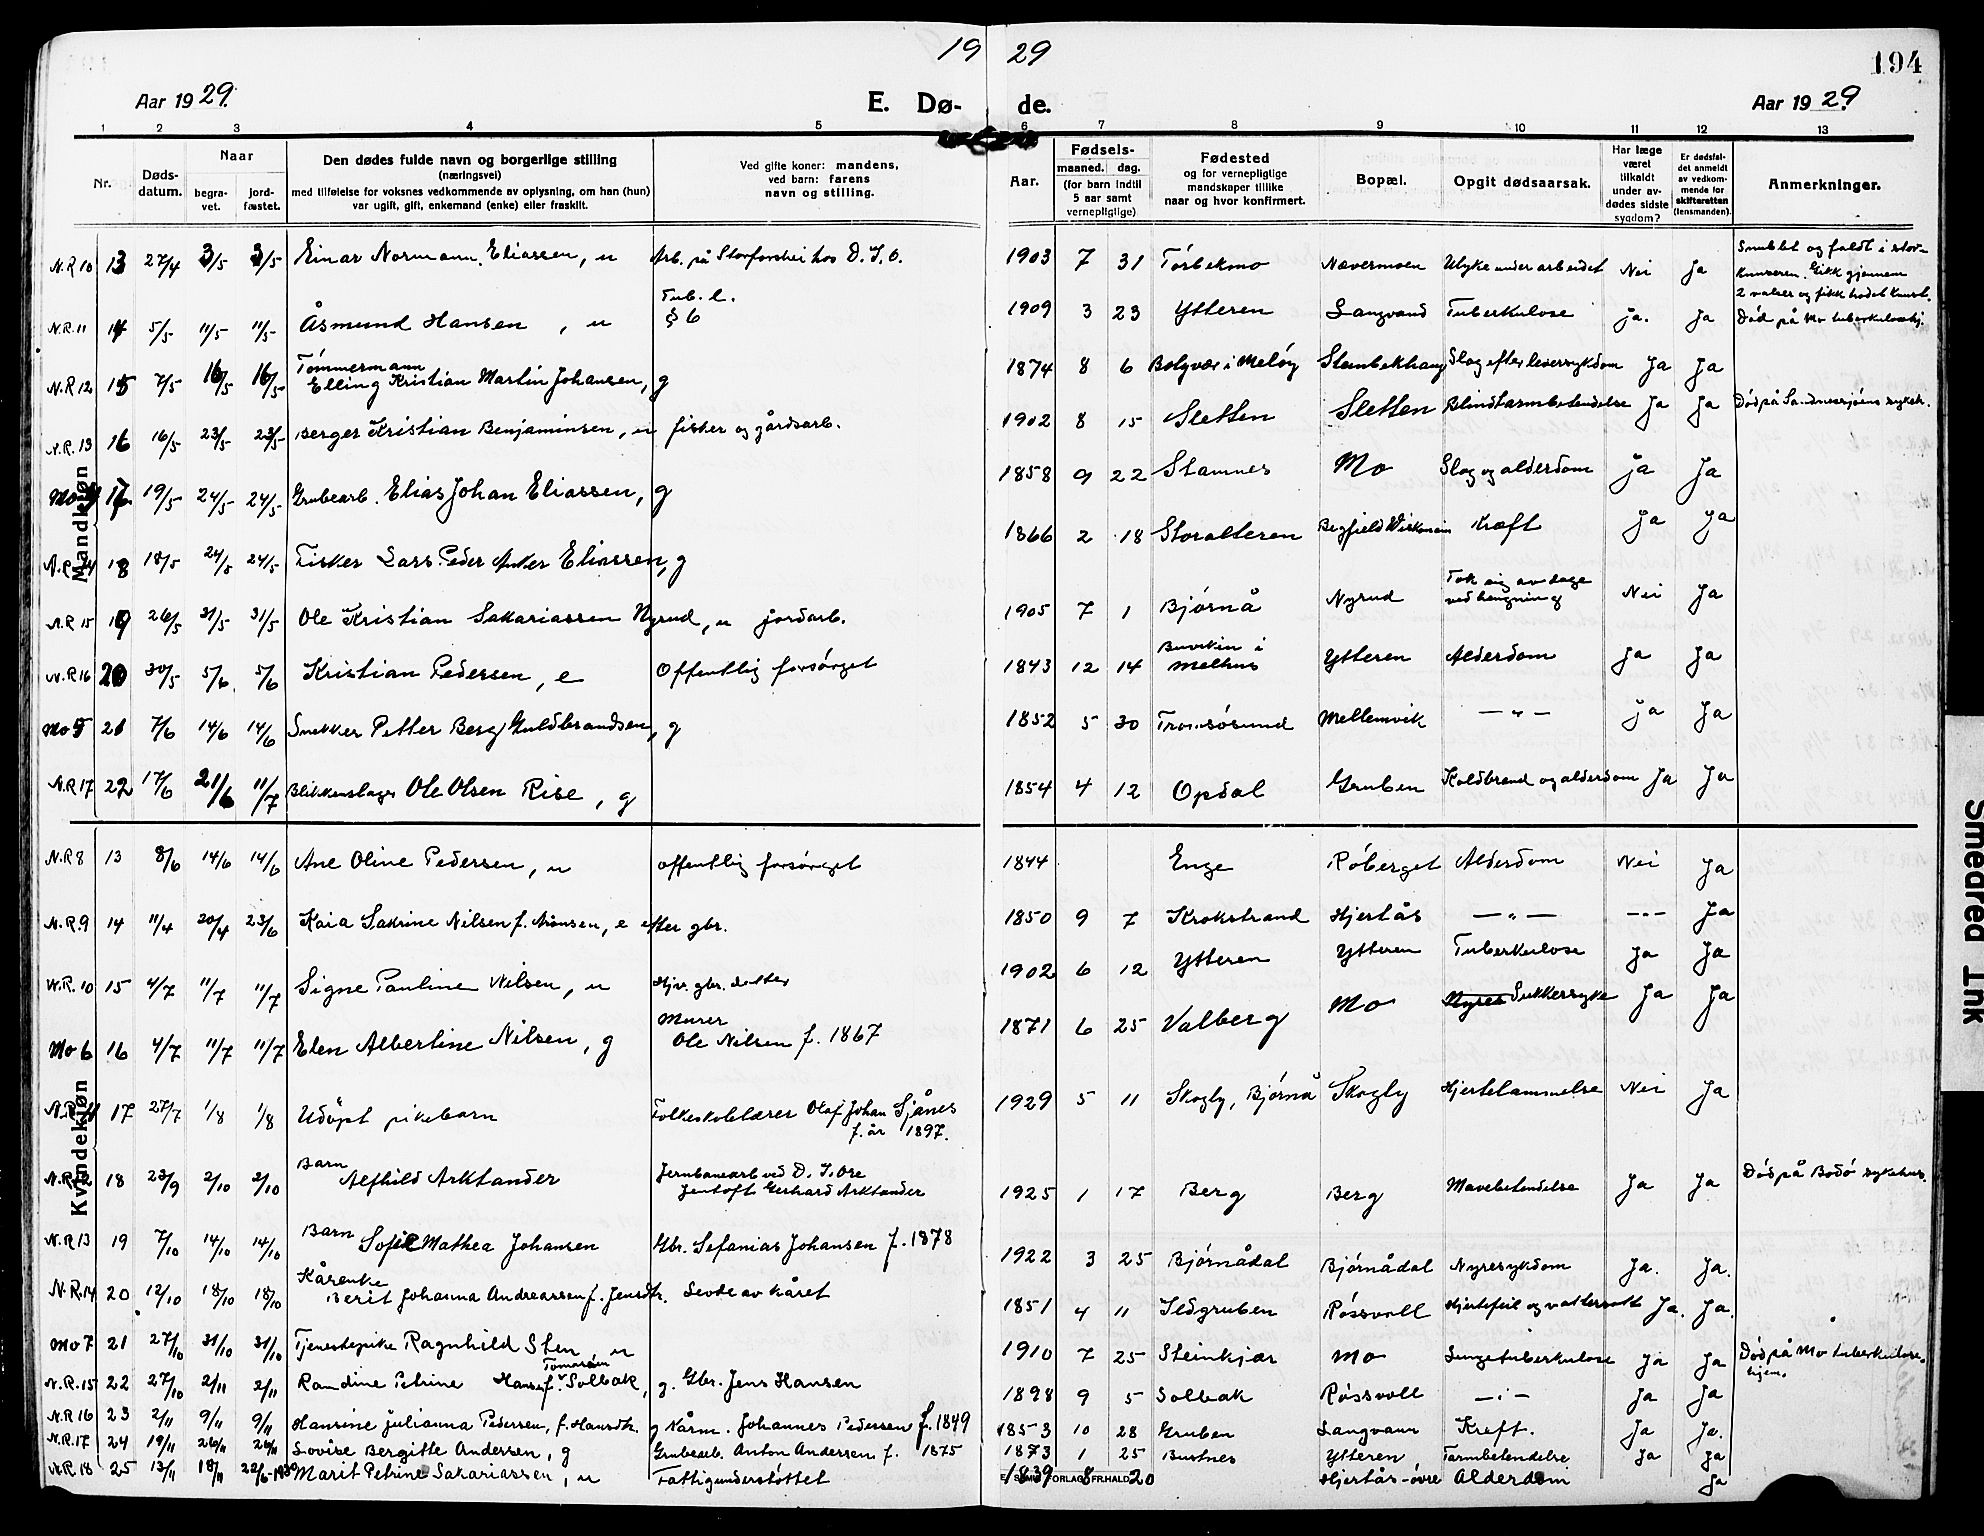 19 29
194
Aar 1929.
E. Dø- de.
Aar 1929
1 2 3 4 5 6 7 8 9 10 11 12 13
Nr.
Døds-datum.
Naar
begra-vet.
jord-fæstet.
Den dødes fulde navn og borgerlige stilling
(næringsvei)
med tilføielse for voksnes vedkommende av oplysning, om han (hun)
var ugift, gift, enkemand (enke) eller fraskilt.
Ved gifte koner: mandens,
ved barn: farens
navn og stilling.
Aar.
Fødsels-
maaned. dag.
(for barn indtil
5 aar samt
vernepligtige)
Fødested
og for vernepligtige
mandskaper tillike
naar og hvor konfirmert.
Bopæl.
Opgit dødsaarsak.
Har læge
været
tilkaldt
under av-
dødes sidste
sygdom?
Er dødsfal-
det anmeldt
av vedkom-
mende for
skifteretten
(lensmanden).
Anmerkninger.
Mandkjøn
N.R 10 13 27/4 3/5 3/5 Einar Normann Eliassen, u Arb. på Storforshei hos D. I. O. 1903 7 31 Torbekmo Nævermoen Ulykke under arbeidet Nei Ja Snublet og faldt i stor-
knuseren. Gikk gjennem
2 valser og fikk hodet knust.
N.R. 11 14 5/5 11/5 11/5 Åsmund Hansen, u Tub. l.
§ 6 1909 3 23 Ytteren Langvand Tuberkulose ja. Ja Død på Mo tuberkulosehj.
N.R. 12 15 7/5 16/5 16/5 Tømmermann
Elling Kristian Martin Johansen, g 1874 8 6 Bolgvær i Meløy Stenbekhaug Slag efter leversykdom Ja Ja
N.R. 13 16 16/5 23/5 23/5 Berger Kristian Benjaminsen, u fisker og gårdsarb. 1902 8 15 Sletten Sletten Blindtarmbetendelse Ja Ja Død på Sandnessjøens sykeh.
Mo 4 17 19/5 24/5 24/5 Grubearb. Elias Johan Eliassen, g 1858 9 22 Stamnes Mo Slag og alderdom ja Ja
N.R 14 18 18/5 24/5 24/5 Fisker Lars Peder Anker Eliassen, g 1866 2 18 Storalteren Kræft Ja Ja
N.R 15 19 26/5 31/5 31/5 Ole Kristian Sakariassen Nyrud, u jordarb. 1905 7 1 Bjørnå Nyrud Tok sig av dage
ved hengning Nei Ja
N.R 16 20 30/5 5/6 5/6 Kristian Pedersen, e Offentlig forsørget 1843 12 14 Buvikin i
Melhus Ytteren Alderdom Ja Ja
Mo 5 21 7/6 14/6 14/6 Snekker Petter Berg Guldbrandsen, g 1852 5 30 Tromsøsund Mellemvik — " — Ja Ja
N.R 17 22 17/6 21/6 11/7 Blikkenslager Ole Olsen Rise, g 1854 4 12 Opdal Gruben Koldbrand og alderdom Ja Ja
Kvindekjøn
N.R 8 13 8/6 14/6 14/6 Ane Oline Pedersen, u offentlig forsørget 1844 Enge Røberget Alderdom Nei Ja
N.R. 9 14 11/4 20/4 23/6 Kaia Sakrine Nilsen f. Aronsen, e efter gbr. 1850 9 7 Krokstrand Hjertås — " — — " — Ja
N.R. 10 15 4/7 11/7 11/7 Signe Pauline Nilsen, u Hjv. gbr. datter 1902 6 12 Ytteren Ytteren Tuberkulose Ja Ja
Mo 6 16 4/7 11/7 11/7 Elen Albertine Nilsen, g Murer
Ole Nilsen f. 1867 1871 6 25 Valberg Mo Nyres Sukkersyke Ja Ja
N.R. 11 17 27/7 1/8 1/8 Udøpt pikebarn Folkeskolelærer Olaf Johan Sjånes
f. år 1897. 1929 5 11 Skogly, Bjørnå Skogly Hjertelammelse Nei Ja
N.R. 12 18 23/9 2/10 2/10 Barn
Alfhild Arktander Jernbanearb ved D. I. Ore
Jentoft Gerhard Arktander 1925 1 17 Berg Berg Mavebetendelse Ja Ja Død på Bodø sykehus.
N.R. 13 19 7/10 14/10 14/10 Barn
Sofie Mathea Johansen Gbr. Sefanias Johansen f. 1878 1922 3 25 Bjørnådal Bjørnådal Nyresykdom Ja. Ja.
N.R. 14 20 12/10 18/10 18/10 Kårenke
Berit Johanna Andreassen f. Jensdtr. Levde av kåret 1851 4 11 Ildgruben Røssvoll Hjertefeil og vattersott Ja. Ja.
Mo 7 21 27/10 31/10 31/10 Tjenestepike Ragnhild Sten u 1910 7 25 Steinkjær Mo Lungetuberkulose Ja Ja Død på Mo tuberkulose-
hjem.
N.R. 15 22 27/10 2/11 2/11 Randine Petrine Hansen f. Solbak, g. Gbr. Jens Hansen 1898 9 5 Solbak Røssvoll — " — Ja Ja
N.R 16 23 2/11 9/11 9/11 Hansine Julianna Pedersen, f. Hansdtr. g Kårm. Johannes Pedersen f. 1849 1853 10 28 Gruben Langvann Kreft. Ja Ja.
N.R. 17 24 19/11 26/11 26/11 Lovise Bergitte Andersen, g Grubearb. Anton Andersen f. 1875 1873 1 25 Bustnes Ytteren Tarmbetendelse Ja Ja
N.R. 18 25 13/11 18/11 22/6-1930 Marit Petrine Sakariassen, u Fattigunderstøttet 1839 8 20 Hjertås-øvre Alderdom Ja
Smedred Tnk